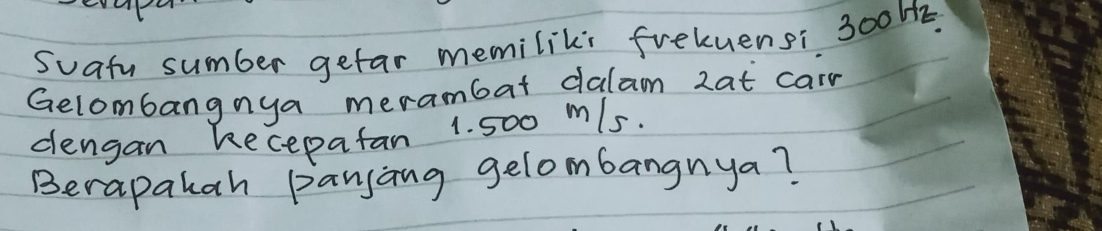 Suatu sumber getar memiliki frekuensi 300 Hz.
Gelombangnya merambat dalam zat cair
dengan kecepatan 1.500 m/s.
Berapakah panjang gelombangnya?